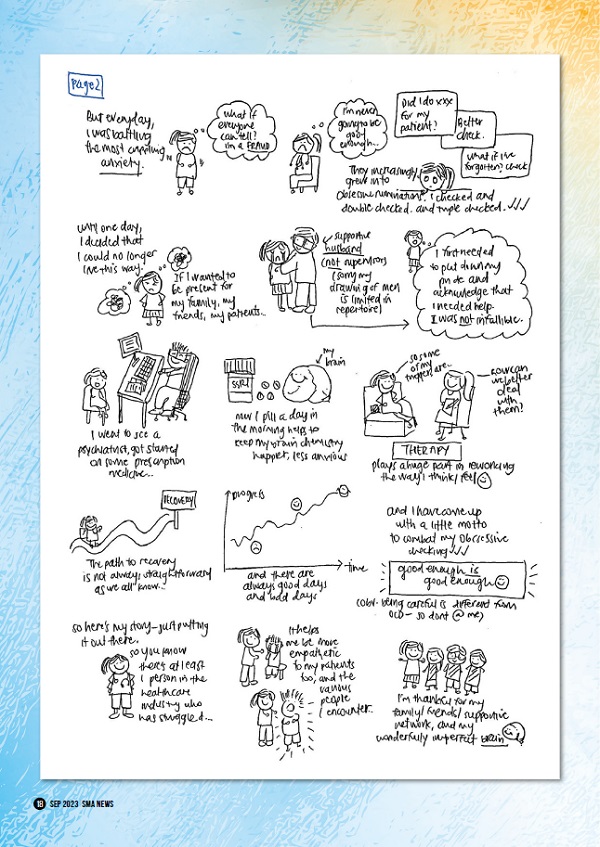 page 2
But everyday,
I was battling
the most crippling
anxiety.
what if
everyone
can tell?
I'm a FRAUD
I'm never
going to be
good
enough...
Did I do xxx
for my
patient?
Better
check.
what if I've
forgotten? check
They increasingly
grew into
obsessive ruminations. I checked and
double checked. and triple checked.
until one day,
I decided that
I could no longer
live this way.
If I wanted to
be present for
my family, my
friends, my patients...
supportive
husband
(not supervisors
(sorry my
drawing of men
is limited in
repertoire)
I first needed
to put down my
pride and
acknowledge that
I needed help.
I was not infallible.
I went to see a
psychiatrist, got started
on some prescription
medicine...
SSRI
my
brain
now 1 pill a day in
the morning helps to
keep my brain chemistry
happier, less anxious
so some
of my
triggers are...
how can
we better
deal
with
them?
THERAPY
plays a huge part in reworking
the way I think/feel
RECOVERY
The path to recovery
is not always straightforward
as we all know...
progress
time
and there are
always good days
and bad days
and I have come up
with a little motto
to combat my obsessive
checking
good enough is
good enough
(obv. being careful is different from
OCD - so don't @ me)
so here's my story - just putting
it out there.
so you know
there's at least
1 person in the
healthcare
industry who
has struggled...
It helps
me be more
empathetic
to my patients
too, and the
various
people
I encounter.
I'm thankful for my
family/friends/supportive
network, and my
wonderfully imperfect brain
18 SEP 2023 SMA NEWS